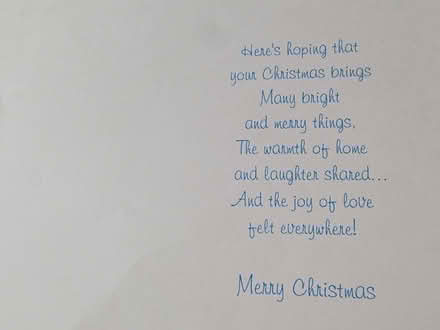 Here's hoping that
your Christmas brings
Many bright
and merry things,
The warmth of home
and laughter shared...
And the joy of love
felt everywhere!
Merry Christmas